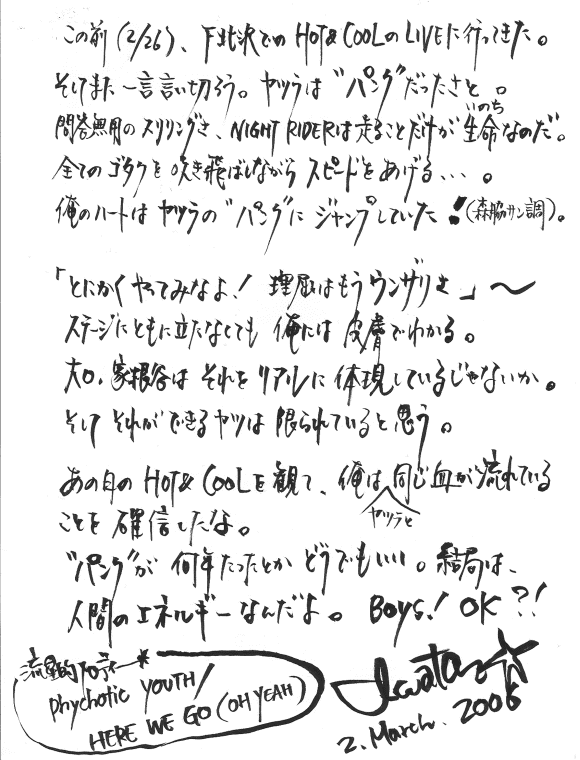 この前(2/26)、下北沢でのHOT&COOLのLIVEに行ってきた。
そしてまた一言言い切ろう。ヤツラは"パンク"だったさと。
問答無用のスリリングさ、NIGHT RIDERは走ることだけが生命なのだ。
のち
全てのゴタクを吹き飛ばしながらスピードをあげる…。
俺のハートはヤツラの"パンク"にジャンプしていた!(森脇サン調)。
「とにかくやってみなよ!理屈はもうウンザリさ」〜
ステージにともに立たなくても俺には皮膚でわかる。
大口、家根谷はそれをリアルに体現しているじゃないか。
そしてそれができるヤツは限られていると思う。
あの日のHOT&COOLを観て、俺は同じ血が流れている
ヤツラと
ことを確信したな。
"パンク"が何年たったとかどうでもいい。結局は、
人間のエネルギーなんだよ。BOYS! OK?!
phychotic YOUTH!
HERE WE GO (OH YEAH)
2. March. 2006